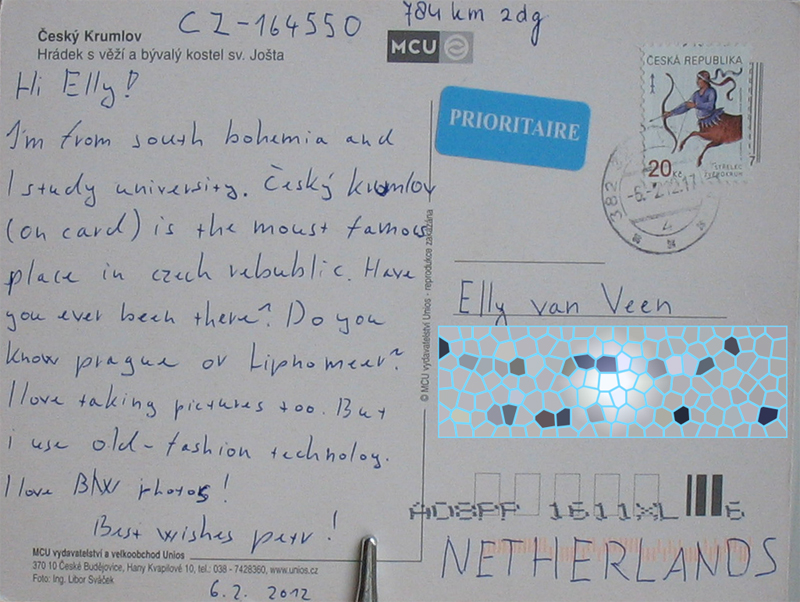 CZ-164550
784 km 2dg
Český Krumlov
Hrádek s věží a bývalý kostel sv. Jošta
MCU
Hi Elly!
I'm from south bohemia and
I study university. Český krumlov
(on card) is the moust famous
place in czech rebublic. Have
you ever been there? Do you
know prague or Liphomeer?
I love taking pictures too. But
i use old-fashion technology.
I love B/W photos!
Best wishes petr!
MCU vydavatelství a velkoobchod Unios
370 10 České Budějovice, Hany Kvapilové 10, tel.: 038 - 7428360, www.unios.cz
Foto: Ing. Libor Sváček
6.2. 2012
© MCU vydavatelství Unios - reprodukce zakázána
PRIORITAIRE
ČESKÁ REPUBLIKA
20 Kč
STŘELEC
ZVĚROKRUH
382
-6.-2.12.17
Elly van Veen
AD8PP 1611XL 6
NETHERLANDS